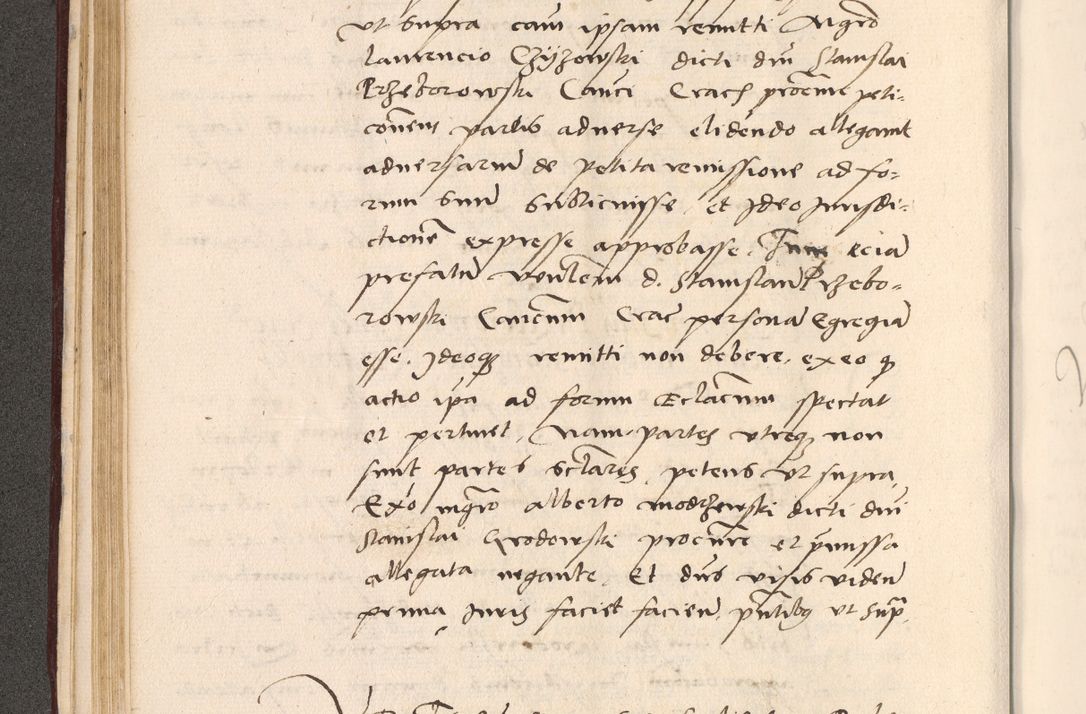 ut supra cau ipsam remitti Mgro
laurencio Czyzowski dicti dni Stanislai
Przeborowski Canci Crac procme peti-
conem partis adverse elidendo allegant
adversarium de petita remissione ad fo-
rum suum subticuisse, et Ideo Jurisdi-
ctionem expresse approbasse. Tum ecia
prefatum venlem d. Stanislaum Przebo-
rowski Canonicum Crac persona Egregia
esse. Ideoq remitti non debere, ex eo q
actio ipa ad forum Eclasticum spectat
et pertinet, Nam partes utreq non
sunt partes sclares, petens ut supra,
Exo mgro alberto modrzewski dicti dni
Stanislai Grodowski procure et pmissa
allegata negante, Et dns visis viden
prima Juris faciet facien, pntibq ut Sup,